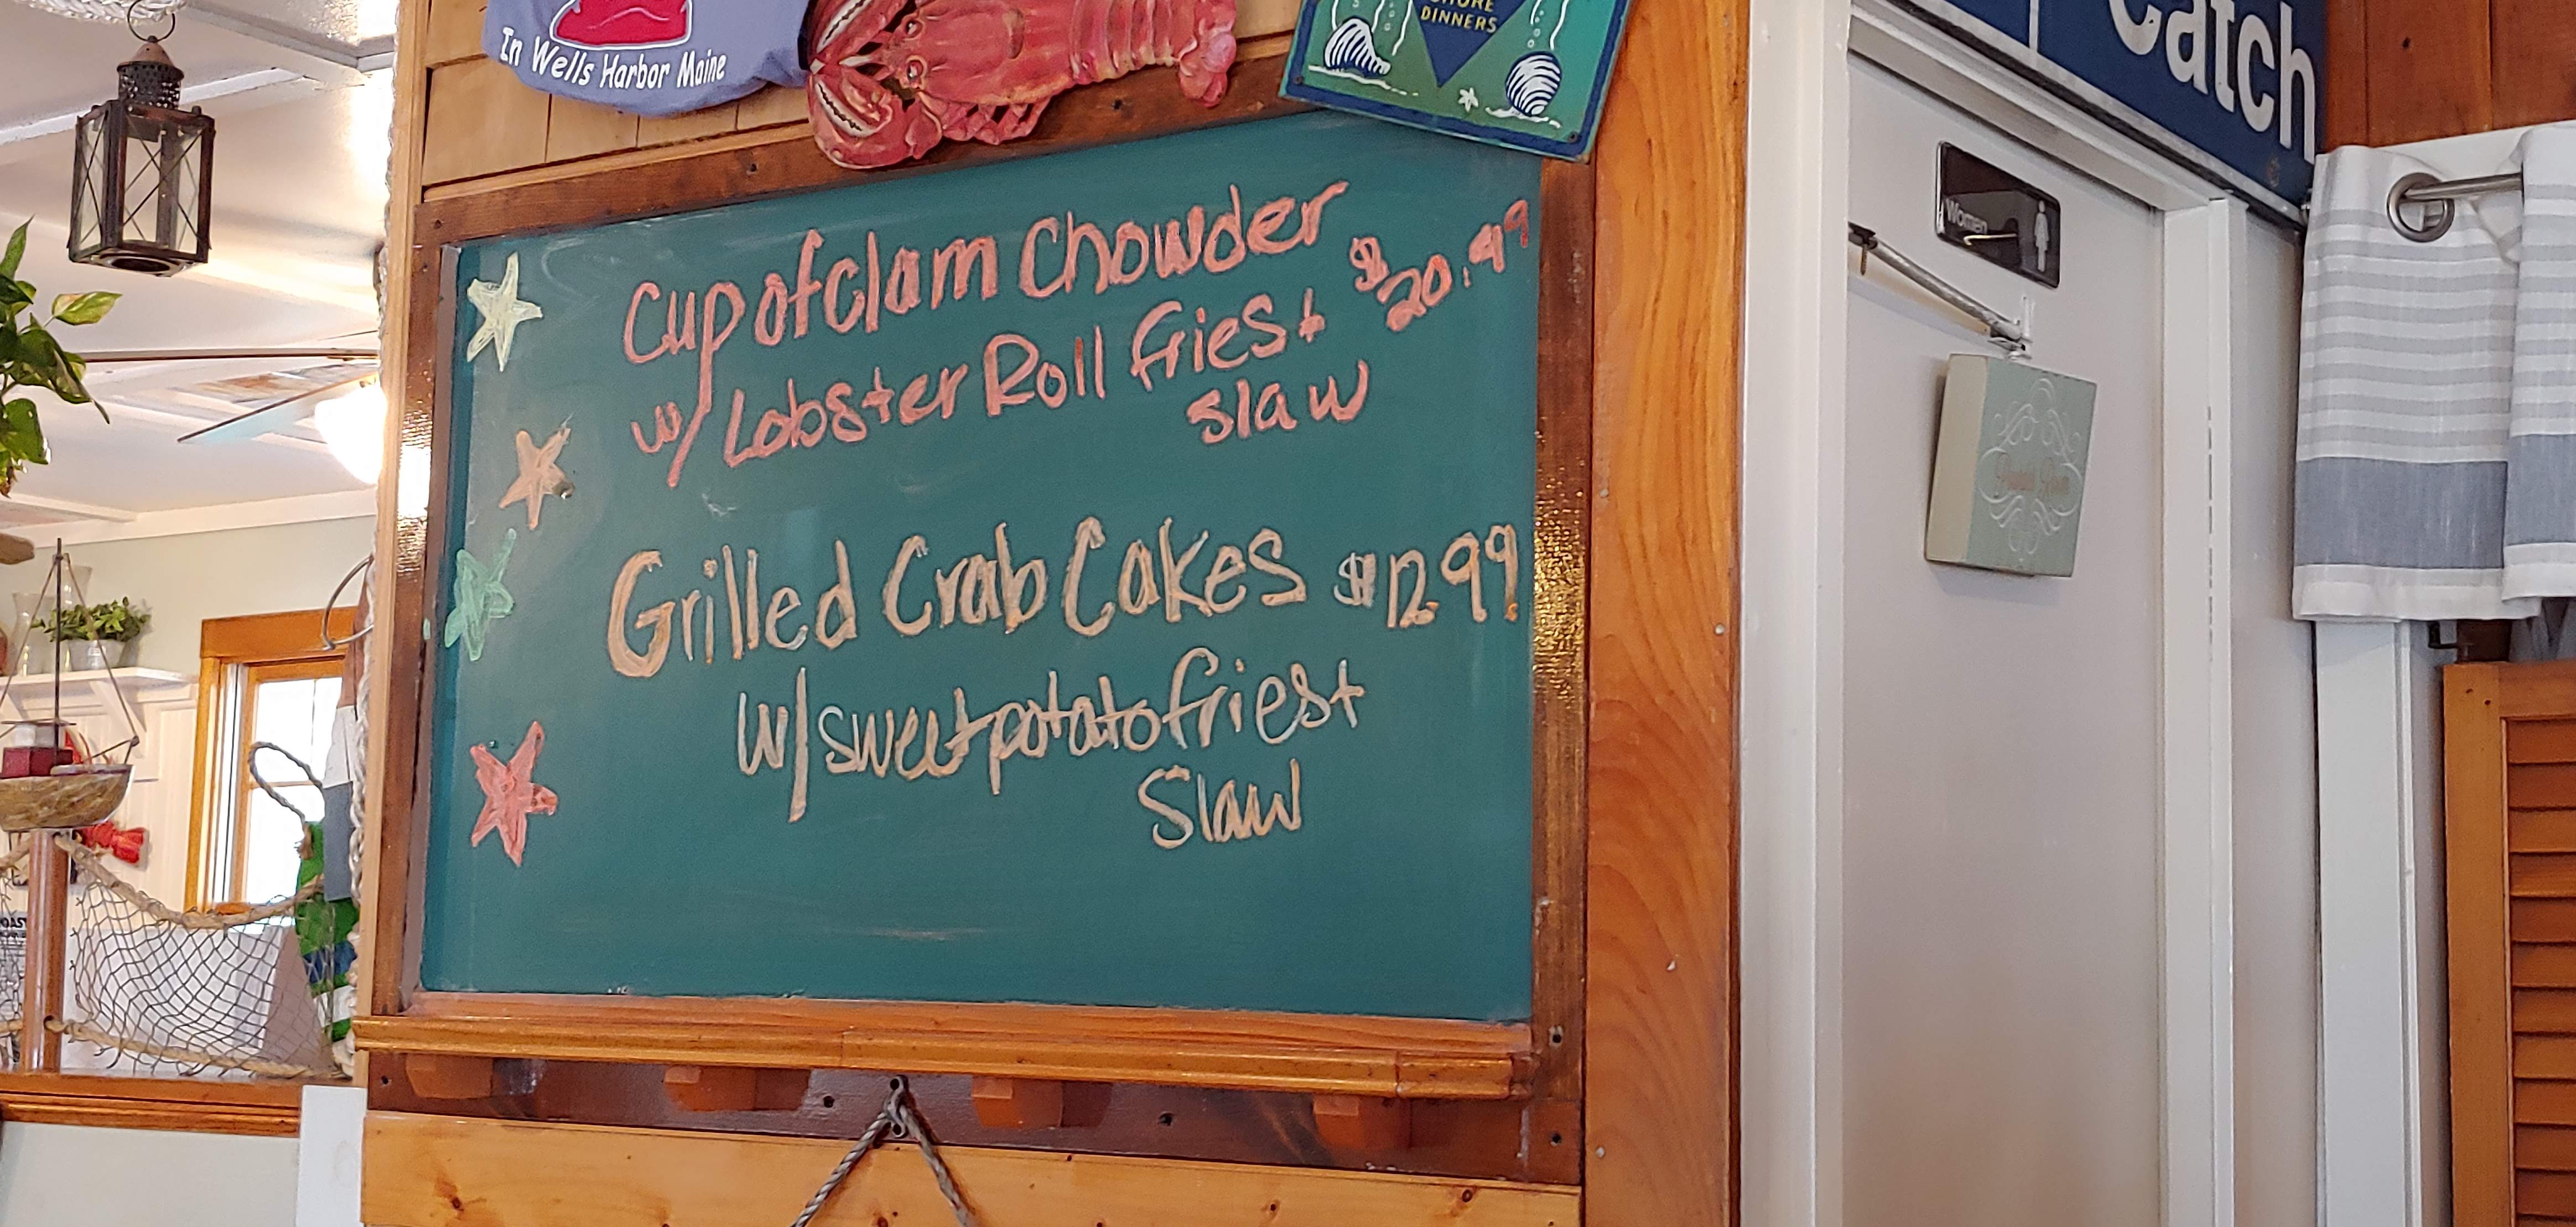 In Wells Harbor Maine
DINNERS
Catch
Women
Cup of Clam Chowder
$20.99
w/ Lobster Roll fries +
slaw
Grilled Crab Cakes $12.99
w/ sweet potato fries +
Slaw